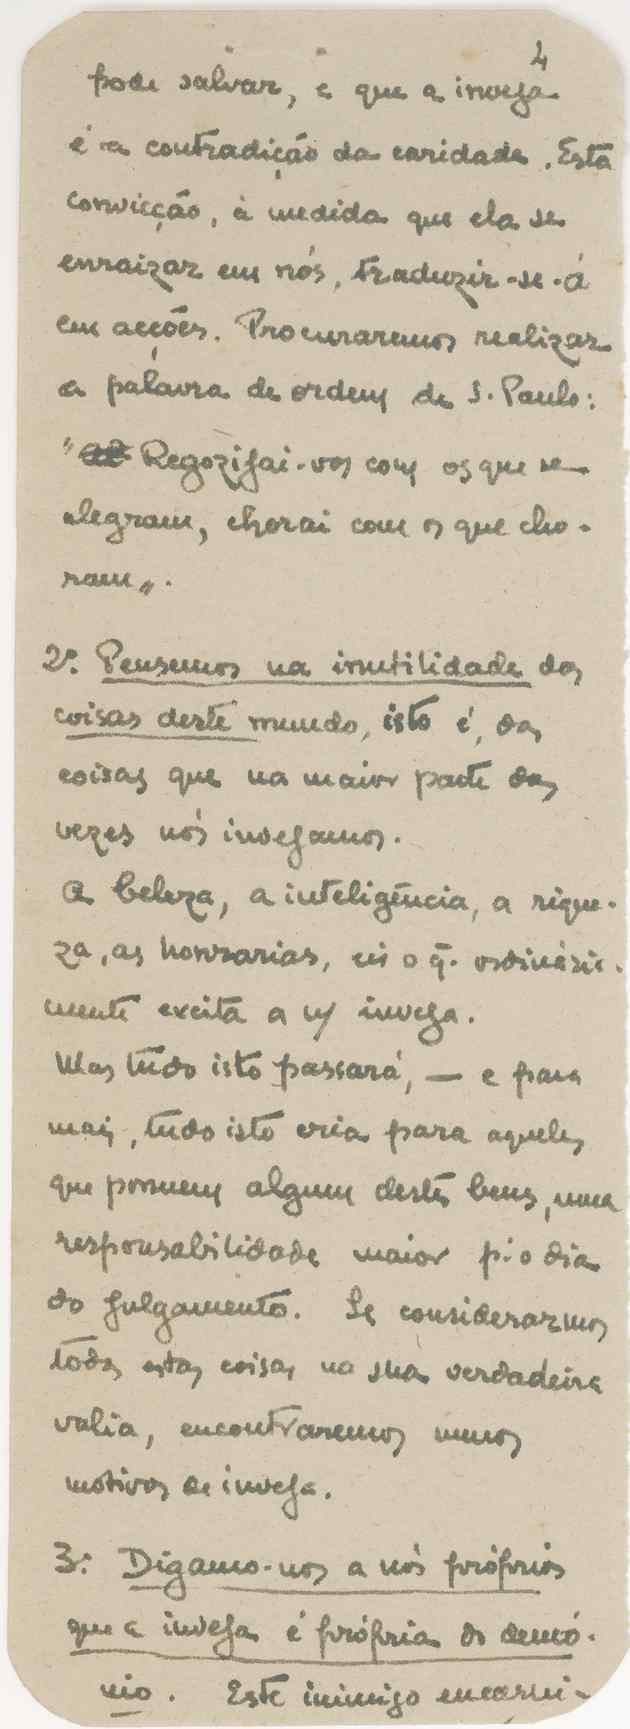 4
pode salvar, e que a inveja
é a contradição da caridade. Esta
convicção, à medida que ela se
enraizar em nós, traduzir-se-á
em acções. Procuraremos realizar
a palavra de ordem de S. Paulo:
"Regozijai-vos com os que se
alegram, chorai com os que cho-
ram".
2º. Pensemos na inutilidade das
coisas deste mundo, isto é, das
coisas que na maior parte das
vezes nós invejamos.
A beleza, a inteligência, a rique-
za, as honrarias, eis o q. ordinária-
mente excita a n/ inveja.
Mas tudo isto passará, — e para
mais, tudo isto cria para aqueles
que possuem algum destes bens, uma
responsabilidade maior p. o dia
do julgamento. Se considerarmos
todas estas coisas na sua verdadeira
valia, encontraremos menos
motivos de inveja.
3º. Digamo-nos a nós próprios
que a inveja é própria do demó-
nio. Este inimigo encarni-